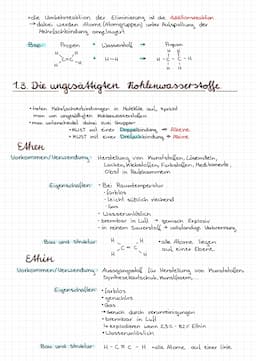 • die Umkehrreaktion der Eliminierung ist die Additionsreaktion
→ dabei werden Atome (Atomgruppen) unter Aufspaltung der
Mehrfachbindung angelagert
Bsp: Propen + Wasserstoff → Propan
H-H
1.3. Die ungesättigten Kohlenwasserstoffe
• treten Mehrfachbindungen in Moleküle auf, spricht
man von ungesättigten Kohlenwasserstoffen
• man unterscheidet dabei zwei Gruppen
• KWST mit einer Doppelbindung → Alkene
• KWST mit einer Dreifachbindung → Alkine
Ethen
Vorkommen/Verwendung: Herstellung von Kunststoffen, Lösemitteln,
Lacken, Klebstoffen, Farbstoffen, Medikamente,
Obst in Reifekammern
Eigenschaften: • Bei Raumtemperatur
• farblos
• leicht süßlich riechend
• Gas
• Wasserunlöslich
• brennbar in Luft → Gemisch explosiv
• in reinem Sauerstoff → vollständige Verbrennung
Bau und Struktur: H H • alle Atome liegen
C=C auf einer Ebene
H H
Ethin
Vorkommen/Verwendung: Ausgangsstoff für Herstellung von Kunststoffen,
Synthesekautschuk, Essigsäure
Eigenschaften: • farblos
• geruchlos
• Gas
→ Geruch durch Verunreinigungen
• brennbar in Luft
↳ explodieren wenn 2,3% - 82% Ethin
• Wasserunlöslich
Bau und Struktur: H-C≡C-H • alle Atome auf einer Linie